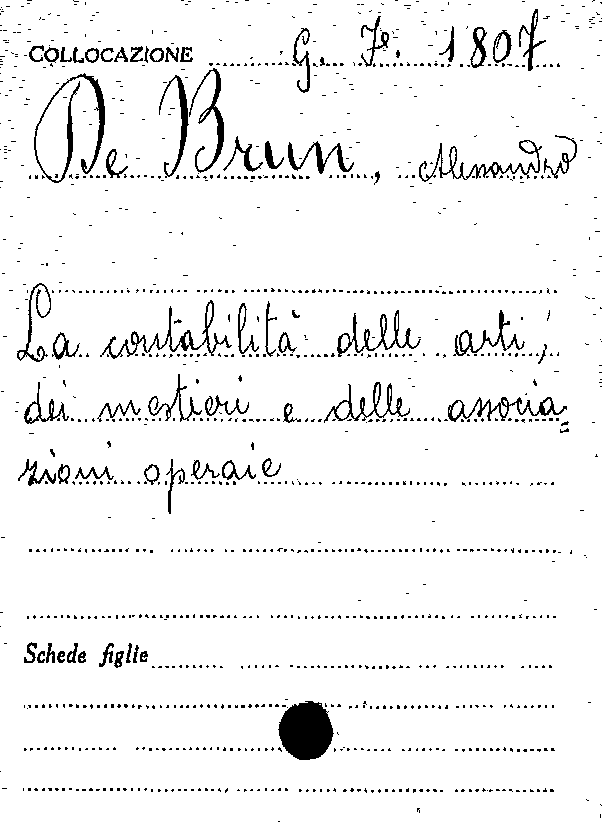 COLLOCAZIONE G. Fe. 1807
De Brun, Alessandro
La contabilità delle arti,
dei mestieri e delle associa=
zioni operaie
Schede figlie